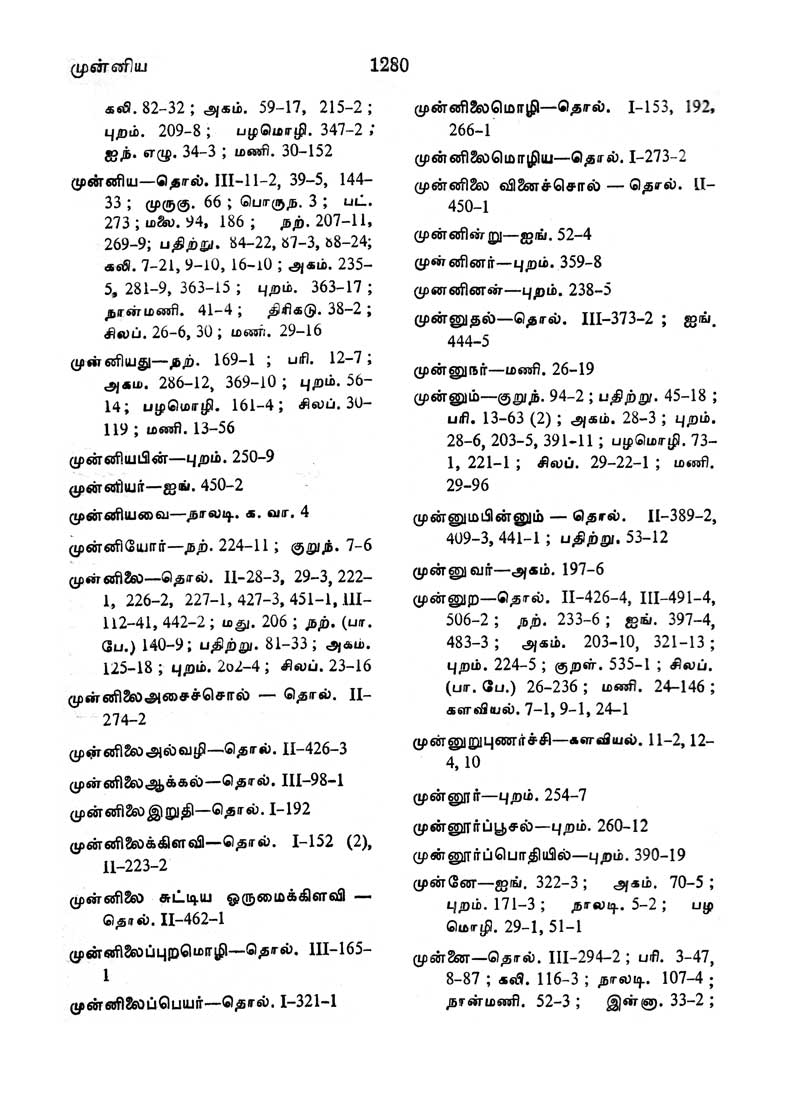 முன்னிய 1280
கலி. 82–32 ; அகம். 59–17, 215–2 ;
புறம். 209–8 ; பழமொழி. 347–2 ;
ஐந். எழு. 34–3 ; மணி. 30–152
முன்னிய—தொல். III–11–2, 39–5, 144–
33 ; முருகு. 66 ; பொருந. 3 ; பட்.
273 ; மலை. 94, 186 ; நற். 207–11,
269–9; பதிற்று. 84–22, 87–3, 88–24;
கலி. 7–21, 9–10, 16–10 ; அகம். 235–
5, 281–9, 363–15 ; புறம். 363–17 ;
நான்மணி. 41–4 ; திரிகடு. 38–2 ;
சிலப். 26–6, 30 ; மண். 29–16
முன்னியது—நற். 169–1 ; பரி. 12–7 ;
அகம. 286–12, 369–10 ; புறம். 56–
14; பழமொழி. 161–4; சிலப். 30–
119 ; மணி. 13–56
முன்னியபின்—புறம். 250–9
முன்னியர்—ஐங். 450–2
முன்னியவை—நாலடி. க. வா. 4
முன்னியோர்—நற். 224–11 ; குறுந். 7–6
முன்னிலை—தொல். II–28–3, 29–3, 222–
1, 226–2, 227–1, 427–3, 451–1, III–
112–41, 442–2 ; மது. 206 ; நற். (பா.
பே.) 140–9; பதிற்று. 81–33 ; அகம்.
125–18 ; புறம். 262–4 ; சிலப். 23–16
முன்னிலைஅசைச்சொல் — தொல். II–
274–2
முன்னிலைஅல்வழி—தொல். II–426–3
முன்னிலைஆக்கல்—தொல். III–98–1
முன்னிலைஇறுதி—தொல். I–192
முன்னிலைக்கிளவி—தொல். I–152 (2),
II–223–2
முன்னிலை சுட்டிய ஒருமைக்கிளவி —
தொல். II–462–1
முன்னிலைப்புறமொழி—தொல். III–165–
1
முன்னிலைப்பெயர்—தொல். I–321–1
முன்னிலைமொழி—தொல். I–153, 192,
266–1
முன்னிலைமொழிய—தொல். I–273–2
முன்னிலை வினைச்சொல் — தொல். II–
450–1
முன்னின்று—ஐங். 52–4
முன்னினர்—புறம். 359–8
முனனினன்—புறம். 238–5
முன்னுதல்—தொல். III–373–2 ; ஐங்.
444–5
முன்னுநர்—மணி. 26–19
முன்னும்—குறுந். 94–2 ; பதிற்று. 45–18 ;
பரி. 13–63 (2) ; அகம். 28–3 ; புறம்.
28–6, 203–5, 391–11 ; பழமொழி. 73–
1, 221–1 ; சிலப். 29–22–1 ; மணி.
29–96
முன்னுமபின்னும் — தொல். II–389–2,
409–3, 441–1 ; பதிற்று. 53–12
முன்னுவர்—அகம். 197–6
முன்னுற—தொல். II–426–4, III–491–4,
506–2 ; நற். 233–6 ; ஐங். 397–4,
483–3 ; அகம். 203–10, 321–13 ;
புறம். 224–5 ; குறள். 535–1 ; சிலப்.
(பா. பே.) 26–236 ; மணி. 24–146 ;
களவியல். 7–1, 9–1, 24–1
முன்னுறுபுணர்ச்சி—களவியல். 11–2, 12–
4, 10
முன்னூர்—புறம். 254–7
முன்னூர்ப்பூசல்—புறம். 260–12
முன்னூர்ப்பொதியில்—புறம். 390–19
முன்னே—ஐங். 322–3 ; அகம். 70–5 ;
புறம். 171–3 ; நாலடி. 5–2 ; பழ
மொழி. 29–1, 51–1
முன்னை—தொல். III–294–2 ; பரி. 3–47,
8–87 ; கலி. 116–3 ; நாலடி. 107–4 ;
நான்மணி. 52–3 ; இன்னா. 33–2 ;